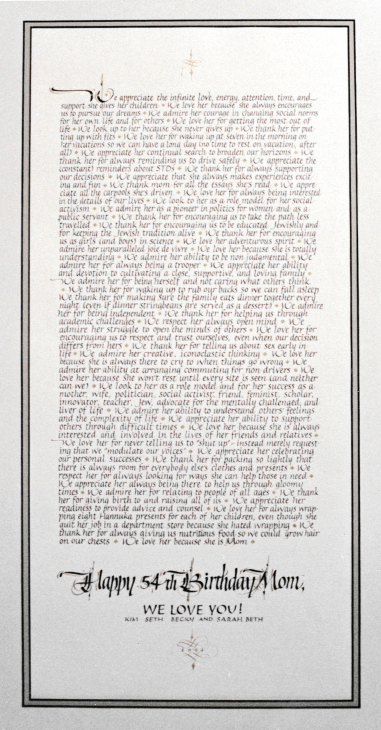 We appreciate the infinite love, energy, attention, time, and
support she gives her children • We love her because she always encourages
us to pursue our dreams • We admire her courage in changing social norms
for her own life and for others • We love her for getting the most out of
life • We look up to her because she never gives up • We thank her for put
ting up with fits • We love her for waking up at seven in the morning on
her vacations so we can have a long day (no time to rest on vacation, after
all) • We appreciate her continual search to broaden our horizons • We
thank her for always reminding us to drive safely • We appreciate the
(constant) reminders about STDs • We thank her for always supporting
our decisions • We appreciate that she always makes experiences excit
ing and fun • We thank mom for all the essays she's read • We appre
ciate all the carpools she's driven • We love her for always being interested
in the details of our lives • We look to her as a role model for her social
activism • We admire her as a pioneer in politics for woman and as a
public servant • We thank her for encouraging us to take the path less
travelled • We thank her for encouraging us to be educated Jewishly and
for keeping the Jewish tradition alive • We thank her for encouraging
us as girls (and boys) in science • We love her adventurous spirit • We
admire her unparalleled joie de vivre • We love her because she is totally
understanding • We admire her ability to be non judgmental • We
admire her for always being a trooper • We appreciate her ability
and devotion to cultivating a close, supportive, and loving family •
We admire her for being herself and not caring what others think
• We thank her for waking up to rub our backs so we can fall asleep
We thank her for making sure the family eats dinner together every
night (even if dinner stringbeans are served as a dessert) • We admire
her for being independent • We thank her for helping us through
academic challenges • We respect her always open mind • We
admire her struggle to open the minds of others • We love her for
encouraging us to respect and trust ourselves, even when our decision
differs from hers • We thank her for telling us about sex early in
life • We admire her creative, iconoclastic thinking • We love her
because she is always there to cry to when things go wrong • We
admire her ability at arranging commuting for non-drivers • We
love her because she won't rest until every site is seen (and neither
can we) • We look to her as a role model and for her success as a
mother, wife, politician, social activist, friend, feminist, scholar,
innovator, teacher, Jew, advocate for the mentally challenged, and
liver of life • We admire her ability to understand others' feelings
and the complexity of life • We appreciate her ability to support
others through difficult times • We love her because she is always
interested and involved in the lives of her friends and relatives •
We love her for never telling us to "shut up" - instead merely request
ing that we "modulate our voices" • We appreciate her celebrating
our personal successes • We thank her for packing so lightly that
there is always room for everybody else's clothes and presents • We
respect her for always looking for ways she can help those in need •
We appreciate her always being there to help us through gloomy
times • We admire her for relating to people of all ages • We thank
her for giving birth to and raising all of us • We appreciate her
readiness to provide advice and counsel • We love her for always wrap
ping eight Hannuka presents for each of her children, even though she
quit her job in a department store because she hated wrapping • We
thank her for always giving us nutritious food so we could grow hair
on our chests • We love her because she is Mom •
Happy 54th Birthday Mom,
WE LOVE YOU!
KIM SETH BECKY AND SARAH BETH